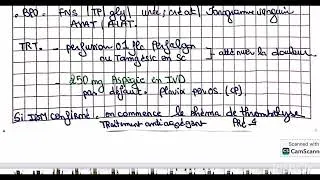 . BPO. FNS | TP | gly | urée, créat | Ionogramme sanguin
ASAT / ALAT.
TRT. - perfusion 01 flc Perfalgan
ou Temgésic en SC
atténuer la douleur
250 mg Aspégic en IVD
par défaut. Plavix per os (cp)
Si IDM confirmé. on commence le schéma de thrombolyse
Traitement antiagrégant
Scanned with
CamScanner